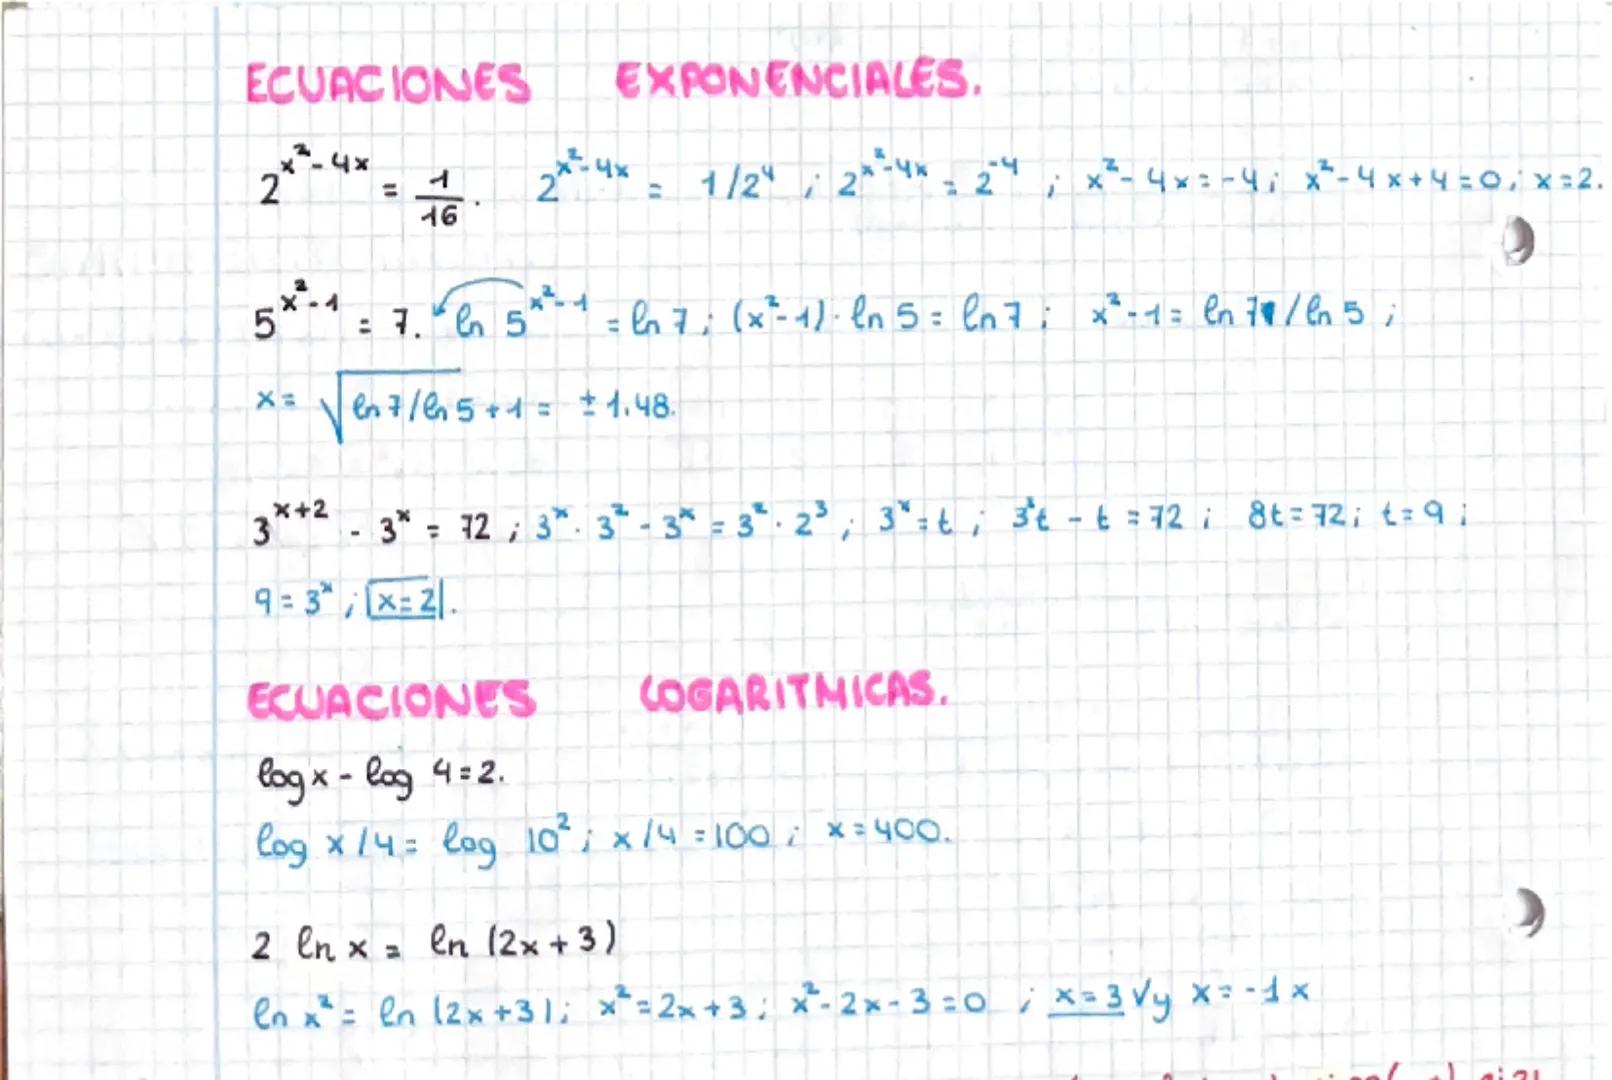 ECUACIONES EXPONENCIALES.
2^(x²-4x) = 1/16. 2^(x²-4x) = 1/2⁴ ; 2^(x²-4x) = 2^-4 ; x²-4x=-4; x²-4x+4=0; x=2.
5^(x²-1) = 7. ln 5^(x²-1) = ln 7; (x²-1)·ln 5 = ln 7; x²-1 = ln 7/ln 5 ;
x = √(ln 7/ln 5+1) = ±1.48.
3^(x+2) - 3^x = 72 ; 3^x·3² - 3^x = 3²·2³ ; 3^x=t ; 3²t - t = 72 ; 8t=72; t=9;
9=3^x ; x=2.
ECUACIONES LOGARITMICAS.
log x - log 4=2.
log x/4 = log 10² ; x/4 = 100 ; x=400.
2 ln x = ln (2x+3)
ln x² = ln (2x+3); x²=2x+3; x²-2x-3=0 ; x=3 √ y x=-1 x